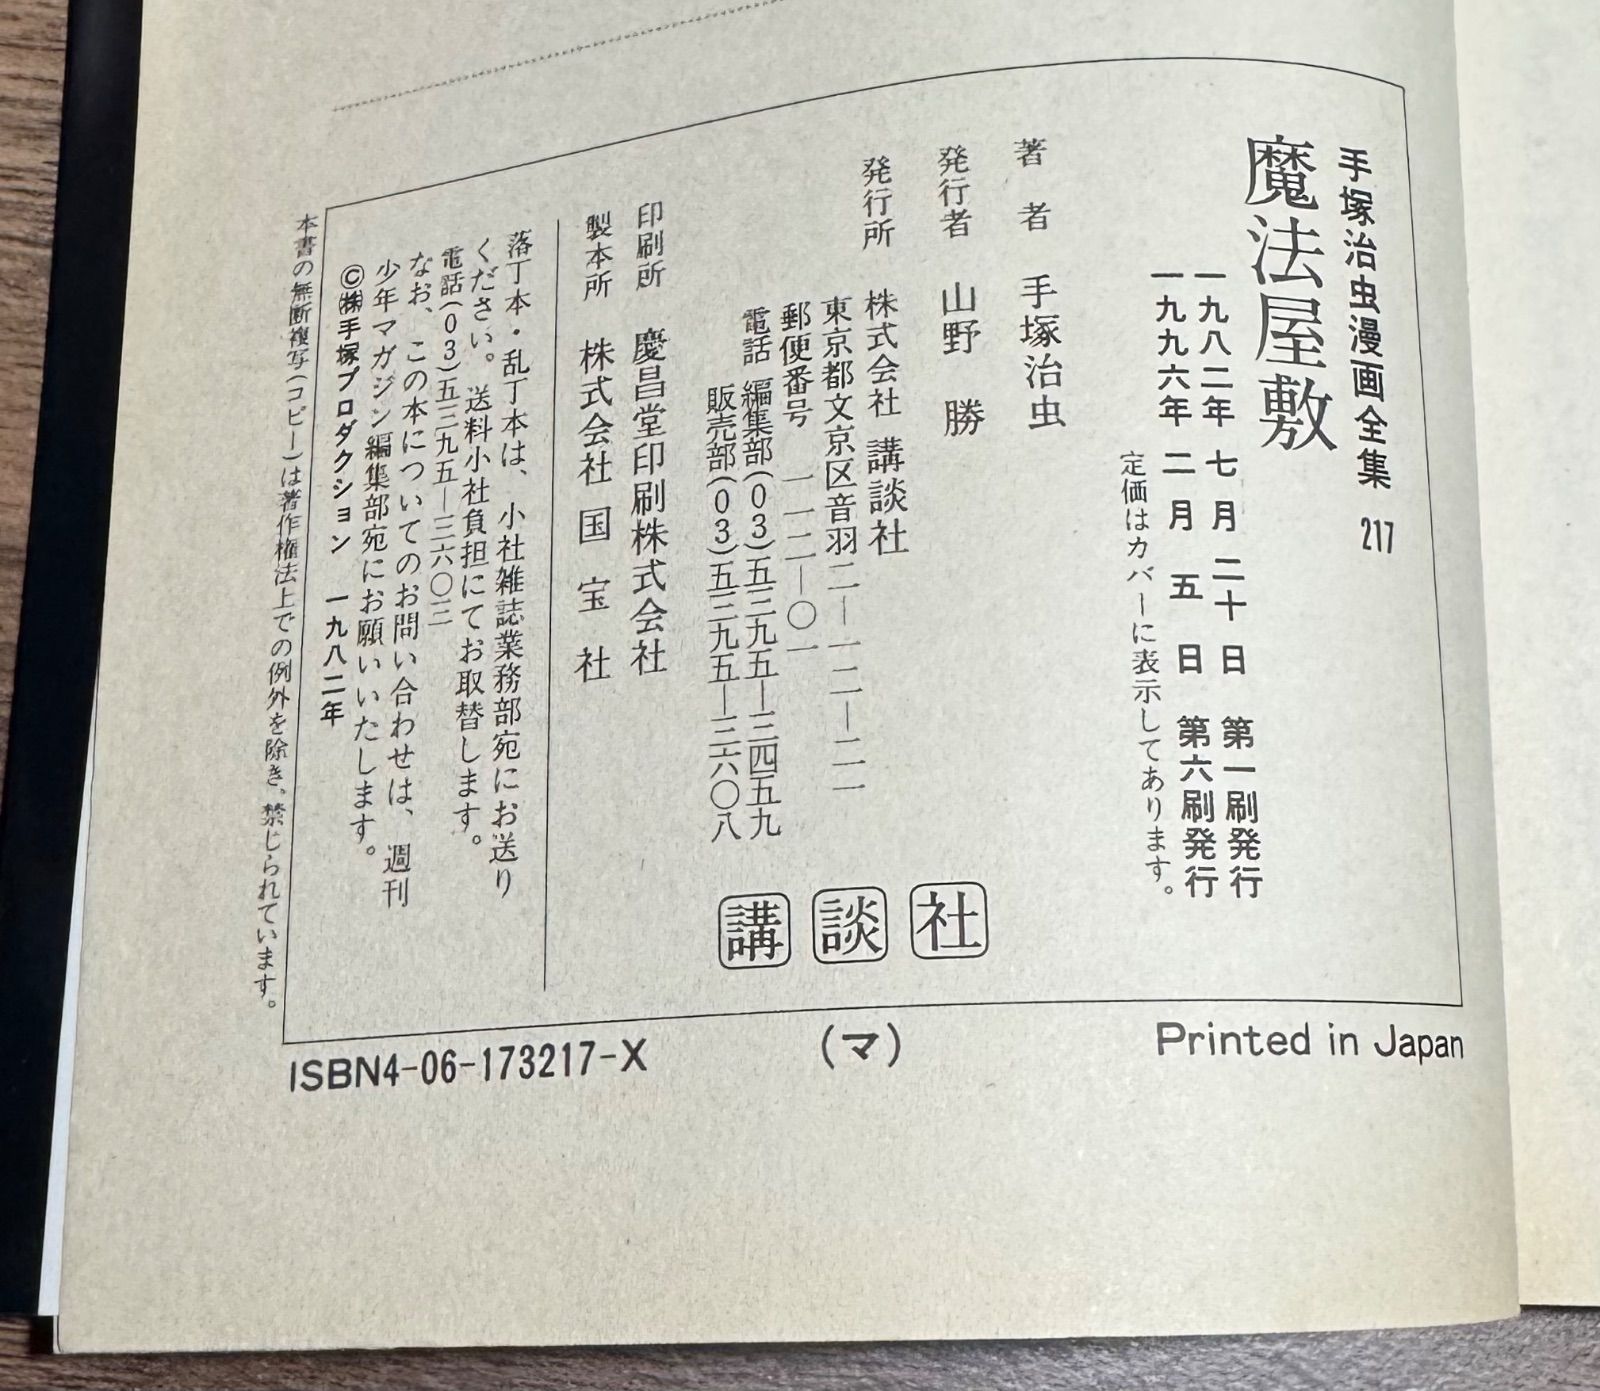 手塚治虫漫画全集 217
魔法屋敷
一九八二年 七月 二十日 第一刷発行
一九九六年 二月 五日 第六刷発行
定価はカバーに表示してあります。
著者 手塚治虫
発行者 山野 勝
発行所 株式会社 講談社
東京都文京区音羽二—一二—二一
郵便番号 一一二—〇一
電話 編集部(03)五三九五—三四五九
販売部(03)五三九五—三六〇八
講談社
印刷所 慶昌堂印刷株式会社
製本所 株式会社 国宝社
落丁本・乱丁本は、小社雑誌業務部宛にお送り
ください。送料小社負担にてお取替します。
電話(03)五三九五—三六〇三
なお、この本についてのお問い合わせは、週刊
少年マガジン編集部宛にお願いいたします。
©㈱手塚プロダクション 一九八二年
本書の無断複写(コピー)は著作権法上での例外を除き、禁じられています。
ISBN4-06-173217-X (マ) Printed in Japan